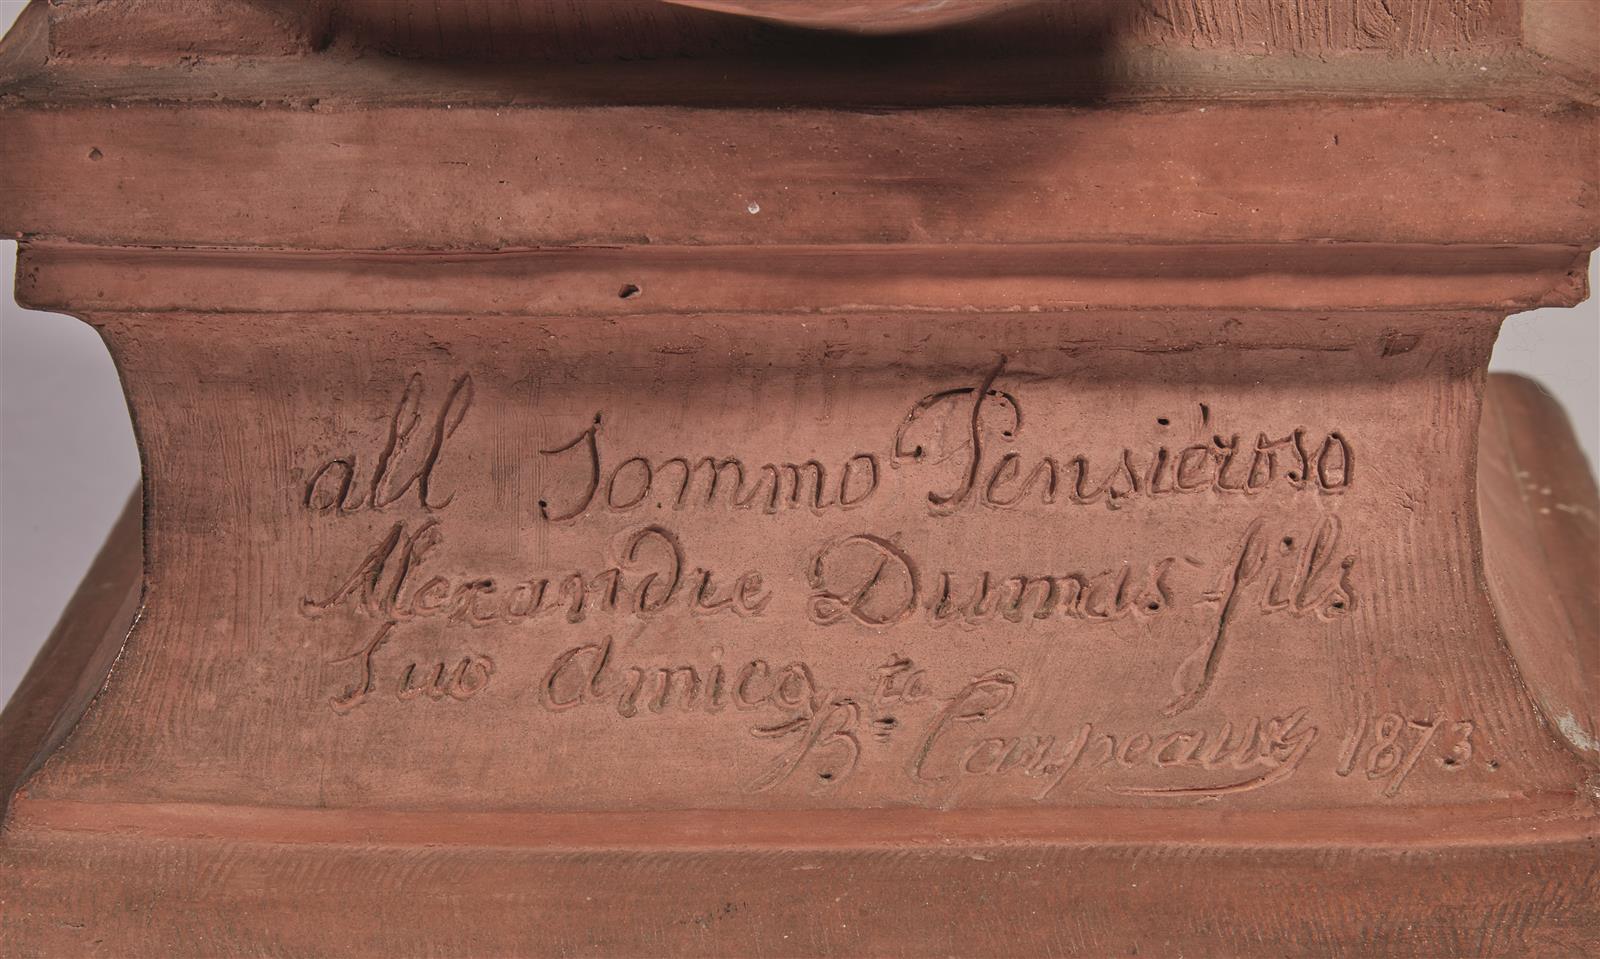 all Sommo Pensieroso
Alexandre Dumas fils
Suo Amico
Bte Carpeaux 1873.